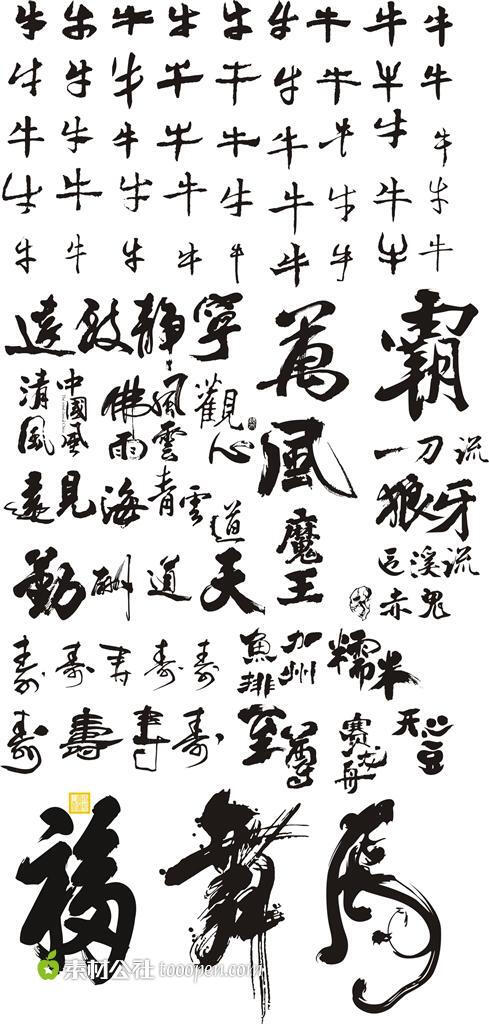 牛 牛 牛 牛 牛 牛 牛 牛 牛
牛 牛 牛 牛 牛 牛 牛 牛 牛
牛 牛 牛 牛 牛 牛 牛 牛 牛
牛 牛 牛 牛 牛 牛 牛 牛 牛
牛 牛 牛 牛 牛 牛 牛 牛 牛
遠 致 靜 寧
萬
霸
清風
中國風
佛雨
風雲
觀心
風
一刀流
狼牙
遠見
海
青雲
道
魔王
勤
酬
道
天
赤鬼
壽 壽 壽 壽 壽
魚排
加州
糯米
壽 壽 壽 壽
至尊
賽龙舟
福
舞
馬
素材公社 tooopen.com